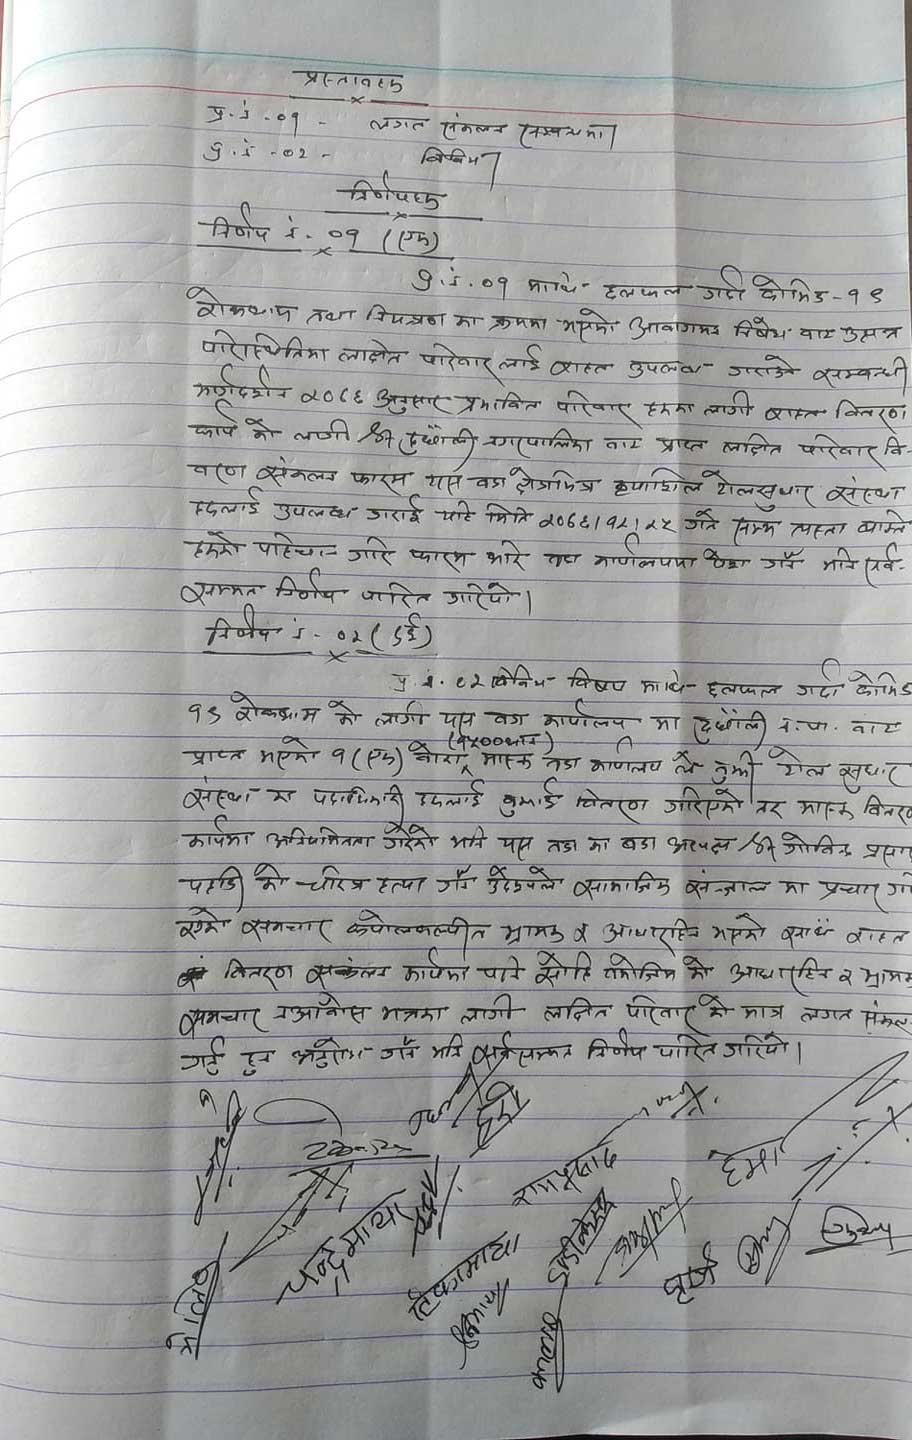 प्रस्तावहरू
प्र.नं.०१ - लगत संकलन सम्बन्धमा।
प्र.नं.०२ - विविध।
निर्णयहरू
निर्णय नं. ०१ (एक)
प्र.नं.०१ माथि छलफल गर्दा कोभिड-१९
रोकथाम तथा नियन्त्रण का क्रममा भएको आवागमन निषेध बाट उत्पन्न
परिस्थितिमा लक्षित परिवार लाई राहत उपलब्ध गराउने सम्बन्धी
मार्गदर्शन २०७६ अनुसार प्रभावित परिवार हरूमा लागी राहत वितरण
कार्य को लागी श्री नगरपालिका बाट प्राप्त लक्षित परिवार वि-
वरण संकलन फारम यस वडा क्षेत्रभित्र क्रियाशिल टोलसुधार संस्था
हरूलाई उपलब्ध गराई यहि मिति २०७६।१२।२८ गते सम्म त्यस्ता व्यक्ति
हरूको पहिचान गरि फारम भरि वडा कार्यालयमा पेश गर्ने भनि सर्व-
सम्मत निर्णय पारित गरियो।
निर्णय नं. ०२ (दुई)
प्र.नं.०२ विविध विषय माथि छलफल गर्दा कोभिड
१९ रोकथाम को लागी यस वडा कार्यालय मा न.पा. बाट
(१५००थान)
प्राप्त भएको १ (एक) बोरा मास्क वडा कार्यालय ले बुझी टोल सुधार
संस्था का पदाधिकारी हरूलाई बुझाई वितरण गरिएको तर मास्क वितरण
कार्यमा अनियमितता गरेको भनि यस वडा का वडा अध्यक्ष श्री गोविन्द प्रसाद
पहाडि को चरित्र हत्या गर्ने उदेश्यले सामाजिक संन्जाल मा प्रचार गरि
एको समचार कपोलकल्पीत भ्रामक र आधारहिन भएको साथै राहत
वितरण संकलन कार्यमा पनि सोहि बमोजिम को आधारहिन र भ्रामक
समचार नआओस भन्नका लागी लक्षित परिवार को मात्र लगत संकलन
गर्नु हुन अनुरोध गर्ने भनि सर्वसम्मत निर्णय पारित गरियो।
चन्द्रमाया
रामप्रसाद
हेमा
टेकामाया